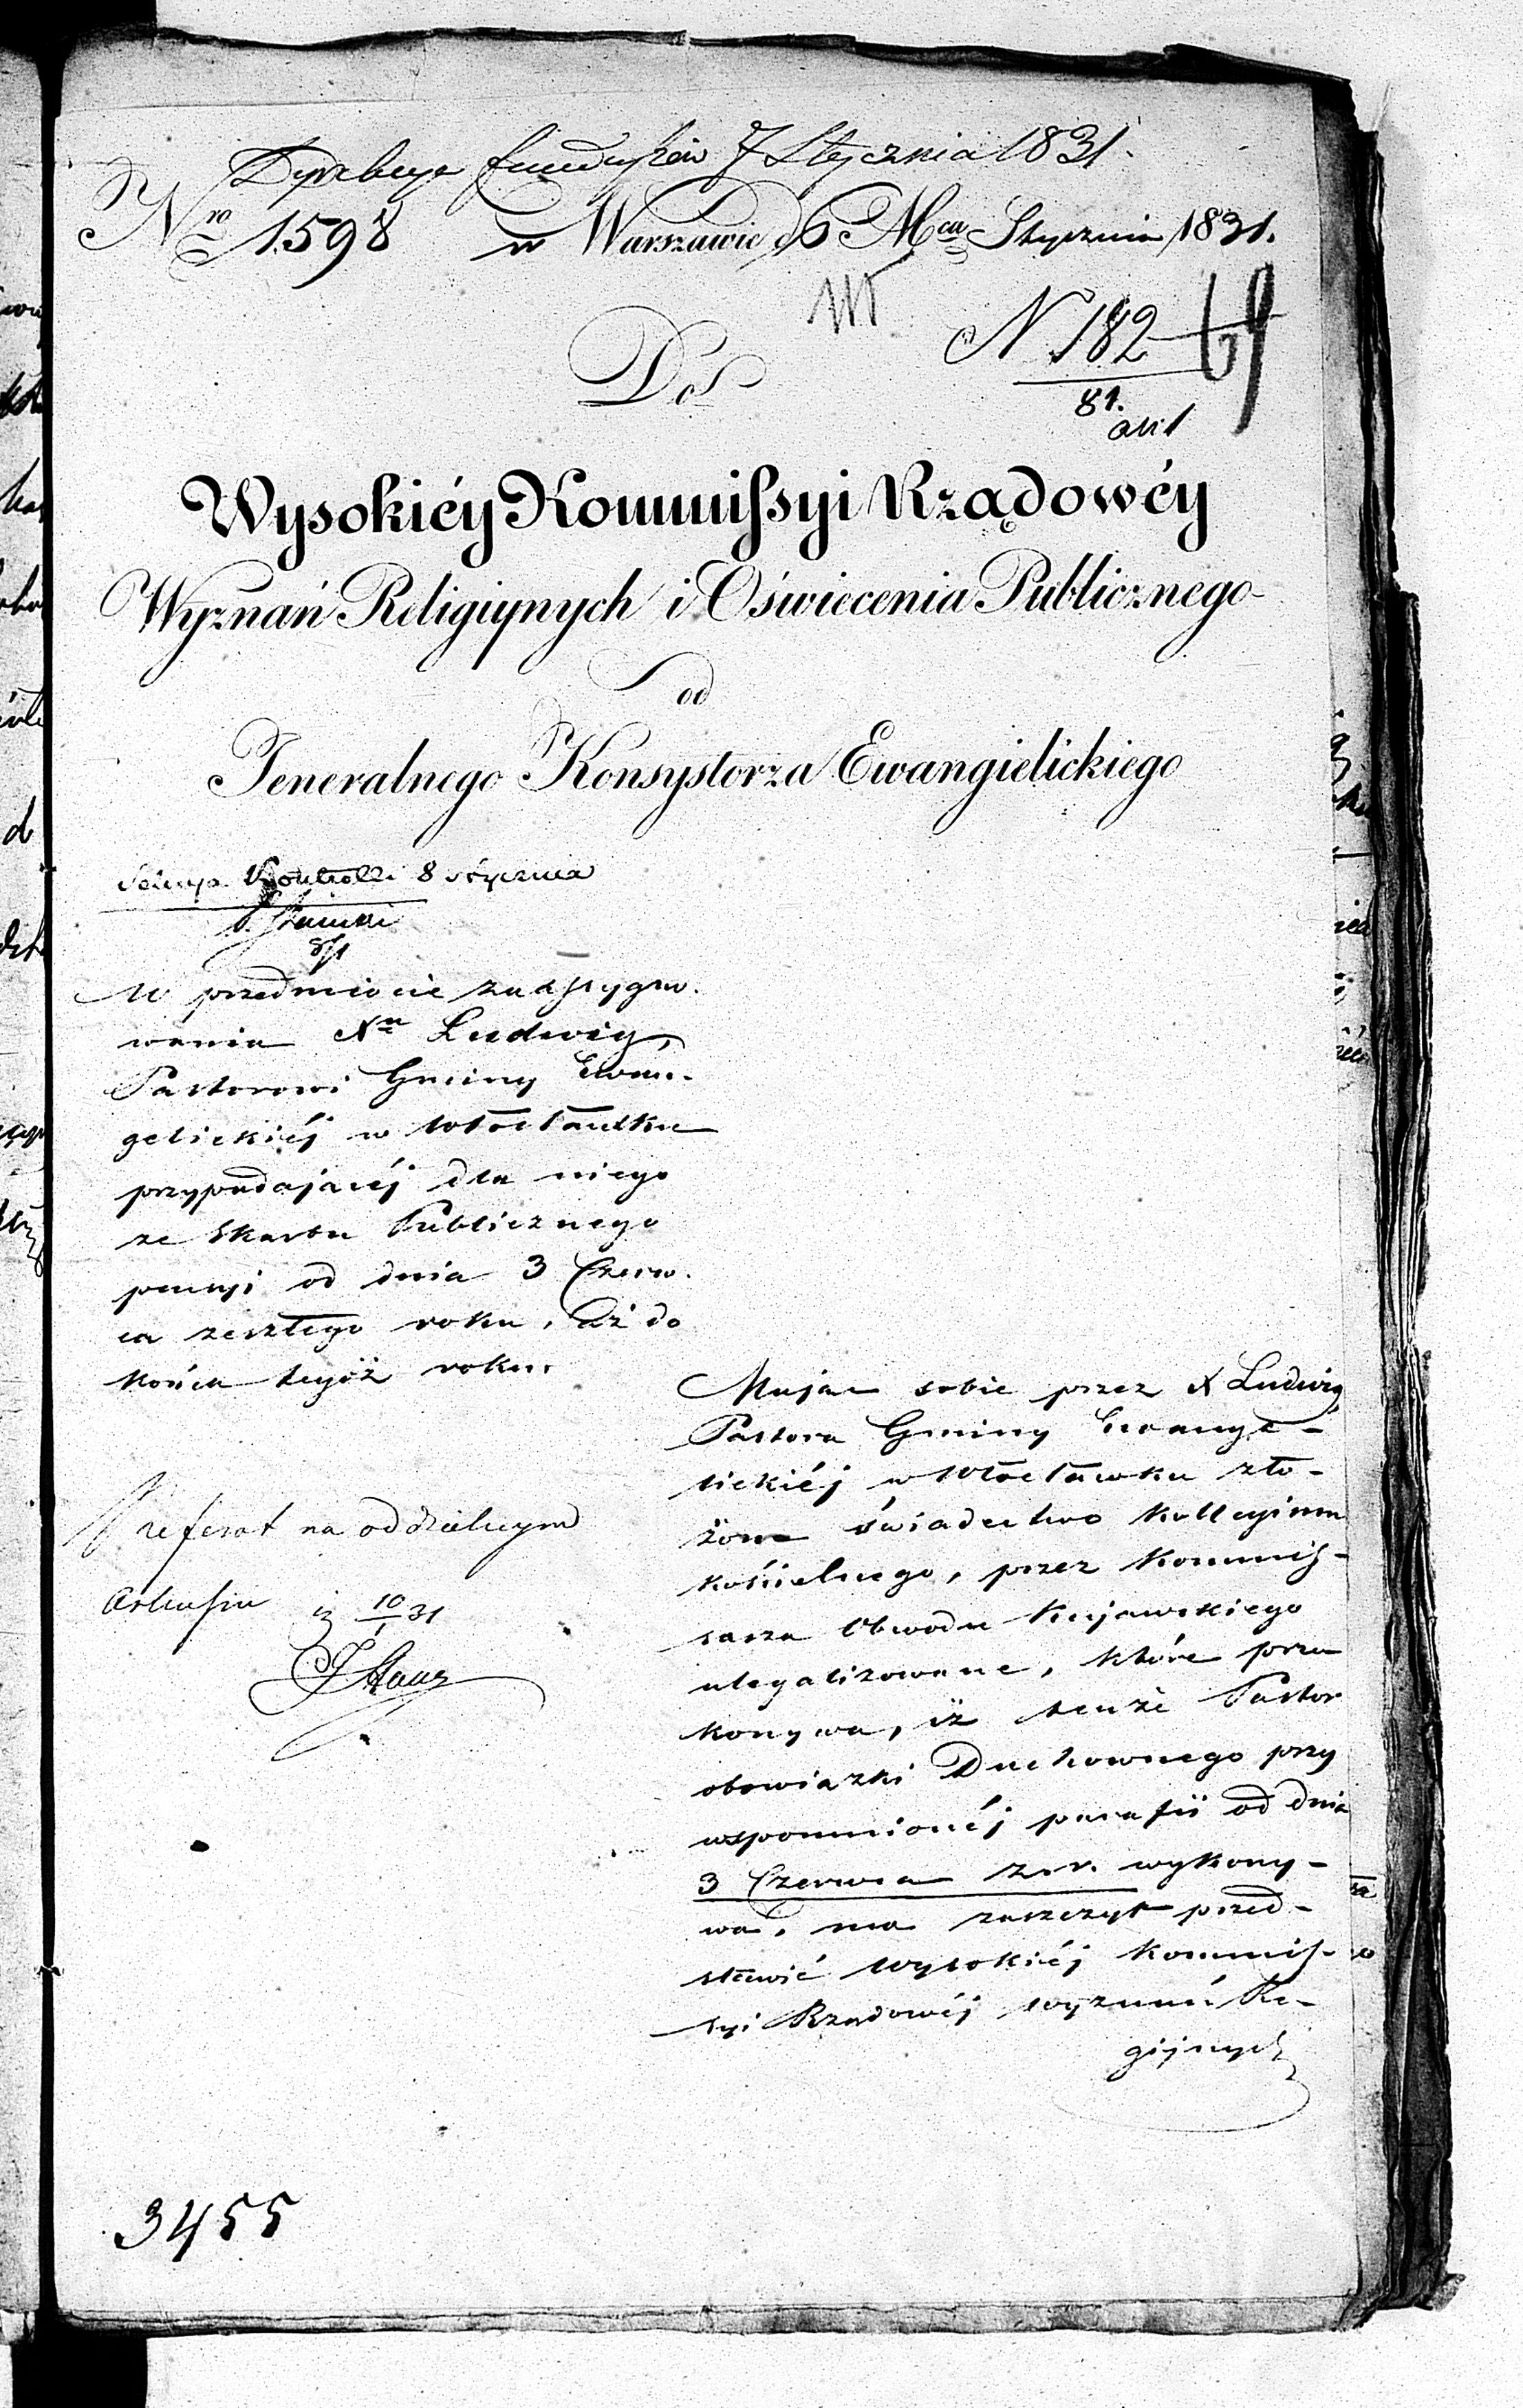 funduszów 7 Stycznia 1831.
Nro 1598 w Warszawie d 6 Mca Stycznia 1831.
N 182
81.
69
Do
Wysokiéy Kommissyi Rządowéy
Wyznań Religiynych i Oświecenia Publicznego
od
Jeneralnego Konsystorza Ewangielickiego
Sekcya Kontrolli 8 stycznia
8/1
W przedmiocie zaassygno-
wania Xu Ludwig,
Pastorowi Gminy Ewan-
gelickiéj w Włocławku
przypadającéj dla niego
ze Skarbu Publicznego
pensyi od dnia 3 Czerw-
ca zeszłego roku, aż do
końca tegóż roku.
referat na oddzielnym
Arkuszu 10/1 31
Mając sobie przez X Ludwig
Pastora Gminy Ewange-
lickiéj w Włocławku zło-
żone świadectwo Kollegium
kościelnego, przez Kommis-
sarza Obwodu Kujawskiego
ulegalizowane, które prze
konywa, iż tenże Pastor
obowiązki Duchownego przy
wspomnionéj parafii od dnia
3 Czerwca z. r. wykony-
wa, ma zaszczyt przed-
stawić Wysokiéj Kommis-
syi Rządowéj Wyznań Re-
gijnych
3455